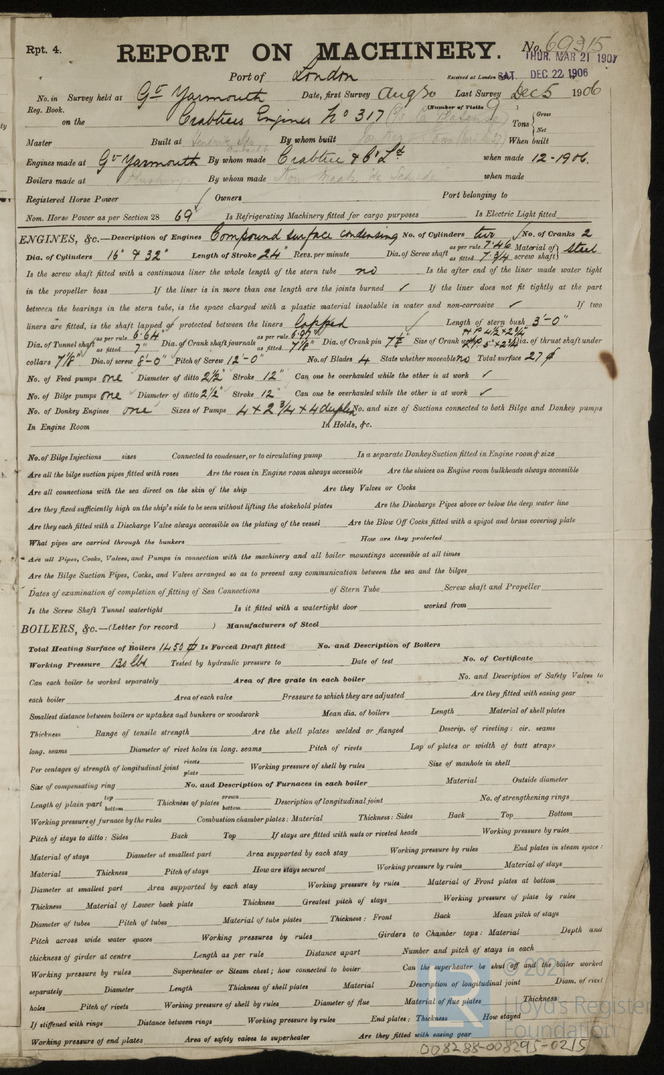 Rpt. 4.
REPORT ON MACHINERY.
No. 69315
THUR. MAR 21 1907
Port of London
Received at London
SAT. DEC 22 1906
No. in Survey held at Gt Yarmouth Date, first Survey Aug 30 Last Survey Dec 5 1906
Reg. Book. (Number of Visits 9
on the Crabtrees Engines No 317 Tons { Gross Net
Master Built at By whom built When built
Engines made at Gt Yarmouth By whom made Crabtree & Co Ld when made 12-1906.
Boilers made at By whom made when made
Registered Horse Power Owners Port belonging to
Nom. Horse Power as per Section 28 69 Is Refrigerating Machinery fitted for cargo purposes Is Electric Light fitted
ENGINES, &c.—Description of Engines Compound surface condensing No. of Cylinders two No. of Cranks 2
Dia. of Cylinders 16" & 32" Length of Stroke 24" Revs. per minute Dia. of Screw shaft as per rule 7.46 as fitted 7 3/4 Material of screw shaft steel
Is the screw shaft fitted with a continuous liner the whole length of the stern tube no Is the after end of the liner made water tight
in the propeller boss If the liner is in more than one length are the joints burned ✓ If the liner does not fit tightly at the part
between the bearings in the stern tube, is the space charged with a plastic material insoluble in water and non-corrosive ✓ If two
liners are fitted, is the shaft lapped or protected between the liners lapped Length of stern bush 3'-0"
Dia. of Tunnel shaft as per rule 6.64" as fitted 7" Dia. of Crank shaft journals as per rule 6.97" as fitted 7 1/8" Dia. of Crank pin 7 1/8" Size of Crank webs Dia. of thrust shaft under
collars 7 1/8" Dia. of screw 8'-0" Pitch of Screw 12'-0" No. of Blades 4 State whether moveable no Total surface 27 ft
No. of Feed pumps one Diameter of ditto 2 1/2" Stroke 12" Can one be overhauled while the other is at work ✓
No. of Bilge pumps one Diameter of ditto 2 1/2" Stroke 12" Can one be overhauled while the other is at work ✓
No. of Donkey Engines one Sizes of Pumps 4 x 2 3/4 x 4 duplex No. and size of Suctions connected to both Bilge and Donkey pumps
In Engine Room In Holds, &c.
No. of Bilge Injections sizes Connected to condenser, or to circulating pump Is a separate Donkey Suction fitted in Engine room & size
Are all the bilge suction pipes fitted with roses Are the roses in Engine room always accessible Are the sluices on Engine room bulkheads always accessible
Are all connections with the sea direct on the skin of the ship Are they Valves or Cocks
Are they fixed sufficiently high on the ship's side to be seen without lifting the stokehold plates Are the Discharge Pipes above or below the deep water line
Are they each fitted with a Discharge Valve always accessible on the plating of the vessel Are the Blow Off Cocks fitted with a spigot and brass covering plate
What pipes are carried through the bunkers How are they protected
Are all Pipes, Cocks, Valves, and Pumps in connection with the machinery and all boiler mountings accessible at all times
Are the Bilge Suction Pipes, Cocks, and Valves arranged so as to prevent any communication between the sea and the bilges
Dates of examination of completion of fitting of Sea Connections of Stern Tube Screw shaft and Propeller
Is the Screw Shaft Tunnel watertight Is it fitted with a watertight door worked from
BOILERS, &c.—(Letter for record ) Manufacturers of Steel
Total Heating Surface of Boilers 1450 ft Is Forced Draft fitted No. and Description of Boilers
Working Pressure 130 lbs Tested by hydraulic pressure to Date of test No. of Certificate
Can each boiler be worked separately Area of fire grate in each boiler No. and Description of Safety Valves to
each boiler Area of each valve Pressure to which they are adjusted Are they fitted with easing gear
Smallest distance between boilers or uptakes and bunkers or woodwork Mean dia. of boilers Length Material of shell plates
Thickness Range of tensile strength Are the shell plates welded or flanged Descrip. of riveting: cir. seams
long. seams Diameter of rivet holes in long. seams Pitch of rivets Lap of plates or width of butt straps
Per centages of strength of longitudinal joint rivets plate Working pressure of shell by rules Size of manhole in shell
Size of compensating ring No. and Description of Furnaces in each boiler Material Outside diameter
Length of plain part top bottom Thickness of plates crown bottom Description of longitudinal joint No. of strengthening rings
Working pressure of furnace by the rules Combustion chamber plates: Material Thickness: Sides Back Top Bottom
Pitch of stays to ditto: Sides Back Top If stays are fitted with nuts or riveted heads Working pressure by rules
Material of stays Diameter at smallest part Area supported by each stay Working pressure by rules End plates in steam space:
Material Thickness Pitch of stays How are stays secured Working pressure by rules Material of stays
Diameter at smallest part Area supported by each stay Working pressure by rules Material of Front plates at bottom
Thickness Material of Lower back plate Thickness Greatest pitch of stays Working pressure of plate by rules
Diameter of tubes Pitch of tubes Material of tube plates Thickness: Front Back Mean pitch of stays
Pitch across wide water spaces Working pressures by rules Girders to Chamber tops: Material Depth and
thickness of girder at centre Length as per rule Distance apart Number and pitch of stays in each
Working pressure by rules Superheater or Steam chest; how connected to boiler Can the superheater be shut off and the boiler worked
separately Diameter Length Thickness of shell plates Material Description of longitudinal joint Diam. of rivet
holes Pitch of rivets Working pressure of shell by rules Diameter of flue Material of flue plates Thickness
If stiffened with rings Distance between rings Working pressure by rules End plates: Thickness How stayed
Working pressure of end plates Area of safety valves to superheater Are they fitted with easing gear
© 2021
Lloyd's Register
Foundation
008288-008295-0215